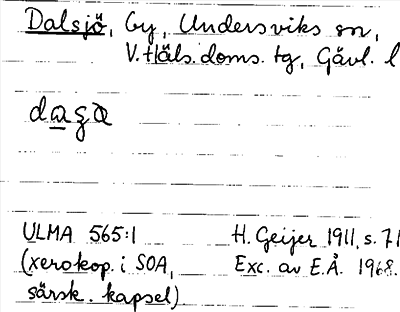 Dalsjö, by, Undersviks sn,
V. Häls. doms. tg, Gävl. l
ULMA 565:1 H. Geijer 1911, s. 71
(xerokop. i SOA, Exc. av E.Å. 1968.
särsk. kapsel)